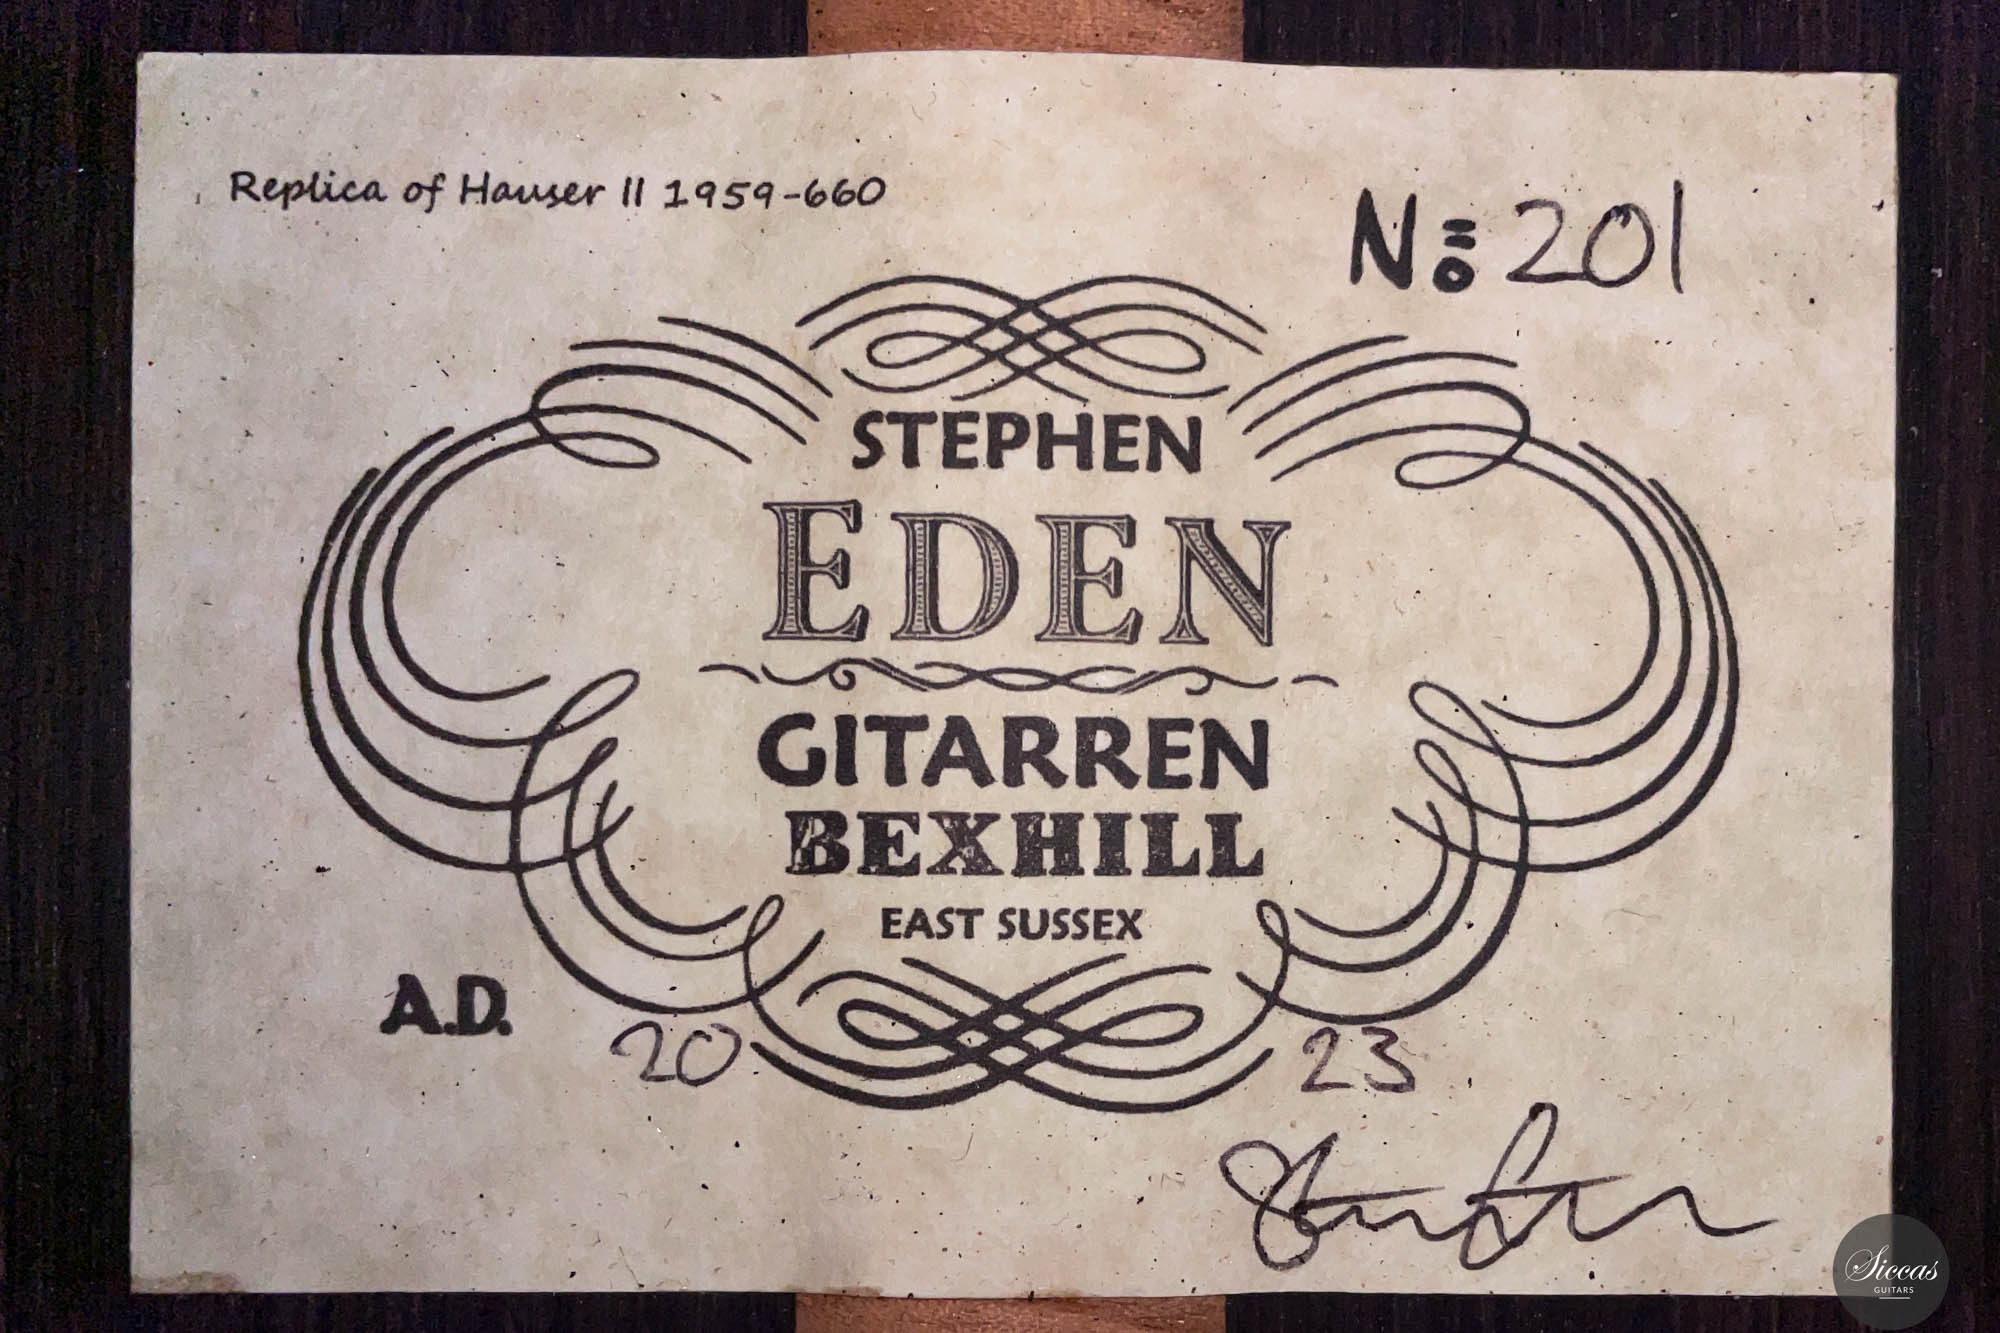 Replica of Hauser II 1959-660
No 201
STEPHEN
EDEN
GITARREN
BEXHILL
EAST SUSSEX
A.D. 20 23
Siccas
GUITARS